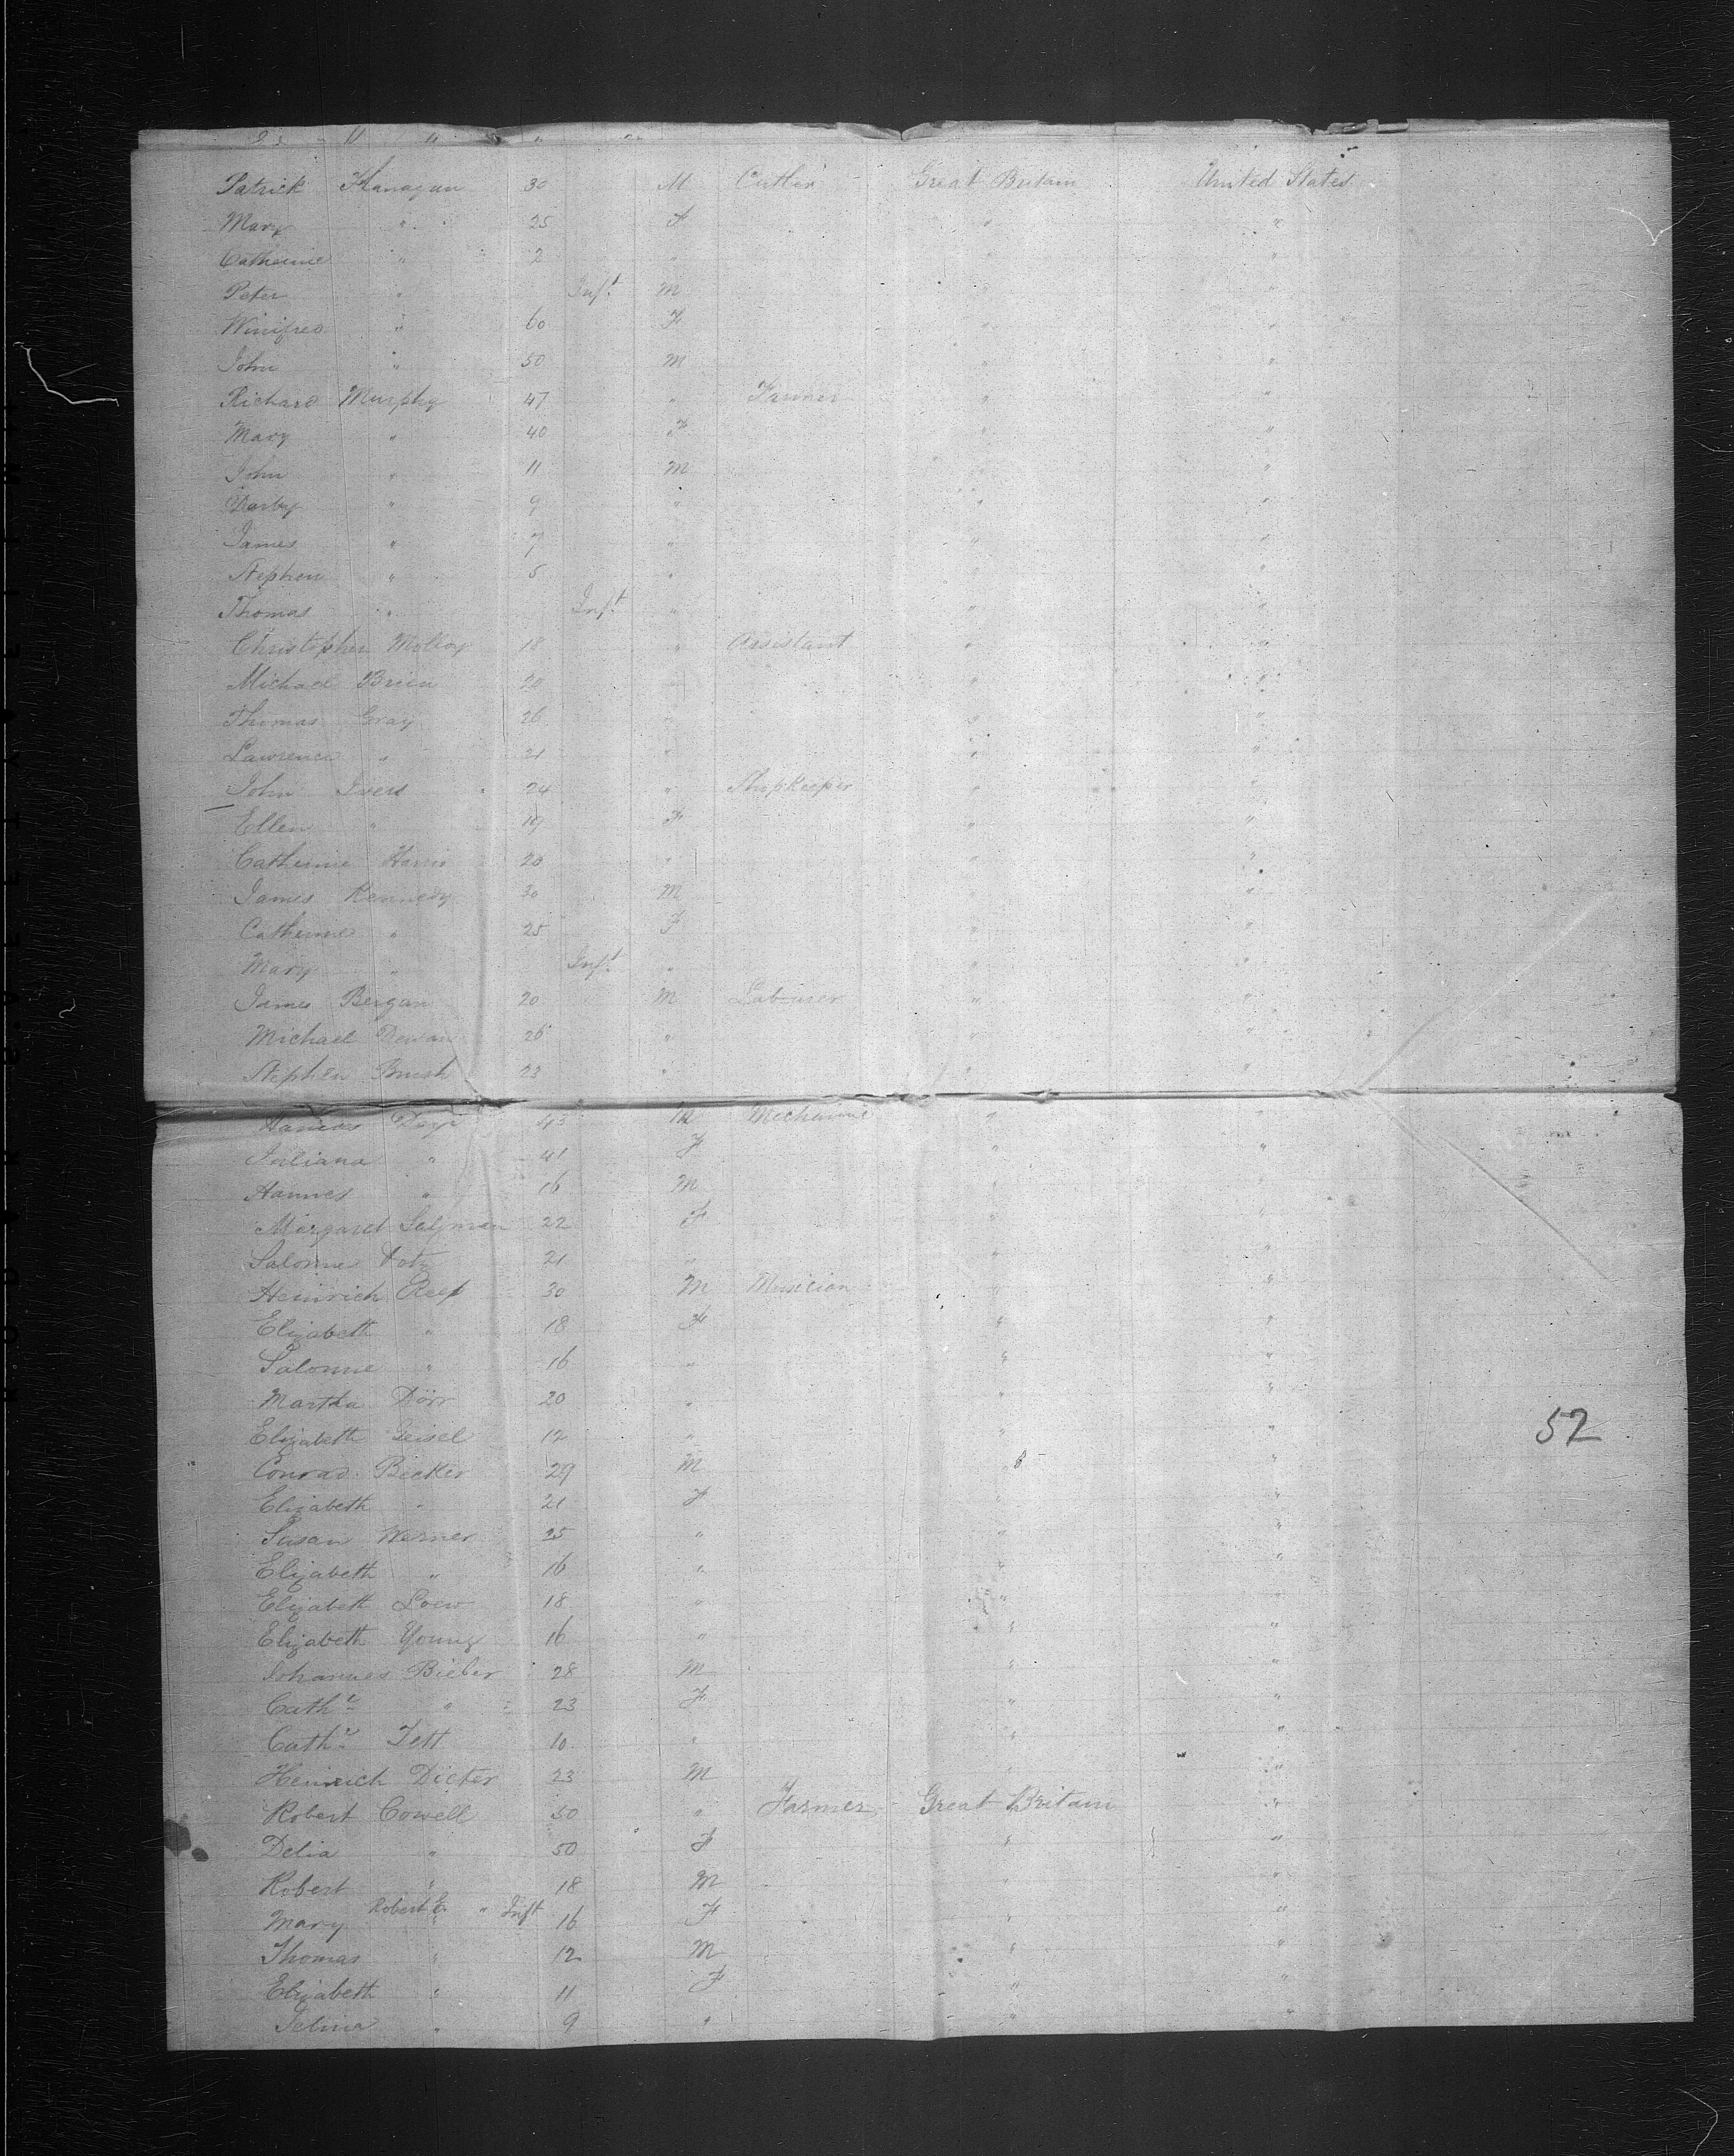 Patrick Flanagan 30 M Cutler Great Britain United States
Mary " 25 F " "
Catherine " 2 " " "
Peter " Inft M " "
Winifred " 60 F " "
John " 50 M " "
Richard Murphy 47 " Farmer " "
Mary " 40 F " "
John " 11 M " "
Darby " 9 " " "
James " 7 " " "
Stephen " 5 " " "
Thomas " Inft " " "
Christopher Molloy 18 " Assistant " "
Michael Brien 20 " " "
Thomas Gray 26 " " "
Lawrence " 21 " " "
John Ivers 24 " Shopkeeper " "
Ellen " 19 F " "
Catherine Harris 20 " " "
James Kennedy 30 M " "
Catherine " 25 F " "
Mary " Inft " " "
James Bergan 20 M Labourer " "
Michael 26 " " "
Stephen 23 " " "
43 M Mechanic " "
Juliana " 41 F " "
Hannes " 16 M " "
Margaret 22 F " "
Salome 21 " " "
Heinrich Reep 30 M Musician " "
Elizabeth " 18 F " "
Salome " 16 " " "
Martha Dörr 20 " " "
Elizabeth Geisel 12 " " "
Conrad Becker 29 M " "
Elizabeth " 21 F " "
Susan Werner 25 " " "
Elizabeth " 16 " " "
Elizabeth Loew 18 " " "
Elizabeth Young 16 " " "
Johannes Bieber 28 M " "
Cathe " 23 F " "
Cathe Tett 10 " " "
Heinrich Dieter 23 M " "
Robert Cowell 50 " Farmer Great Britain "
Delia " 50 F " "
Robert " 18 M " "
Robert E. " Inft
Mary " 16 F " "
Thomas " 12 M " "
Elizabeth " 11 F " "
Selina " 9 " " "
52